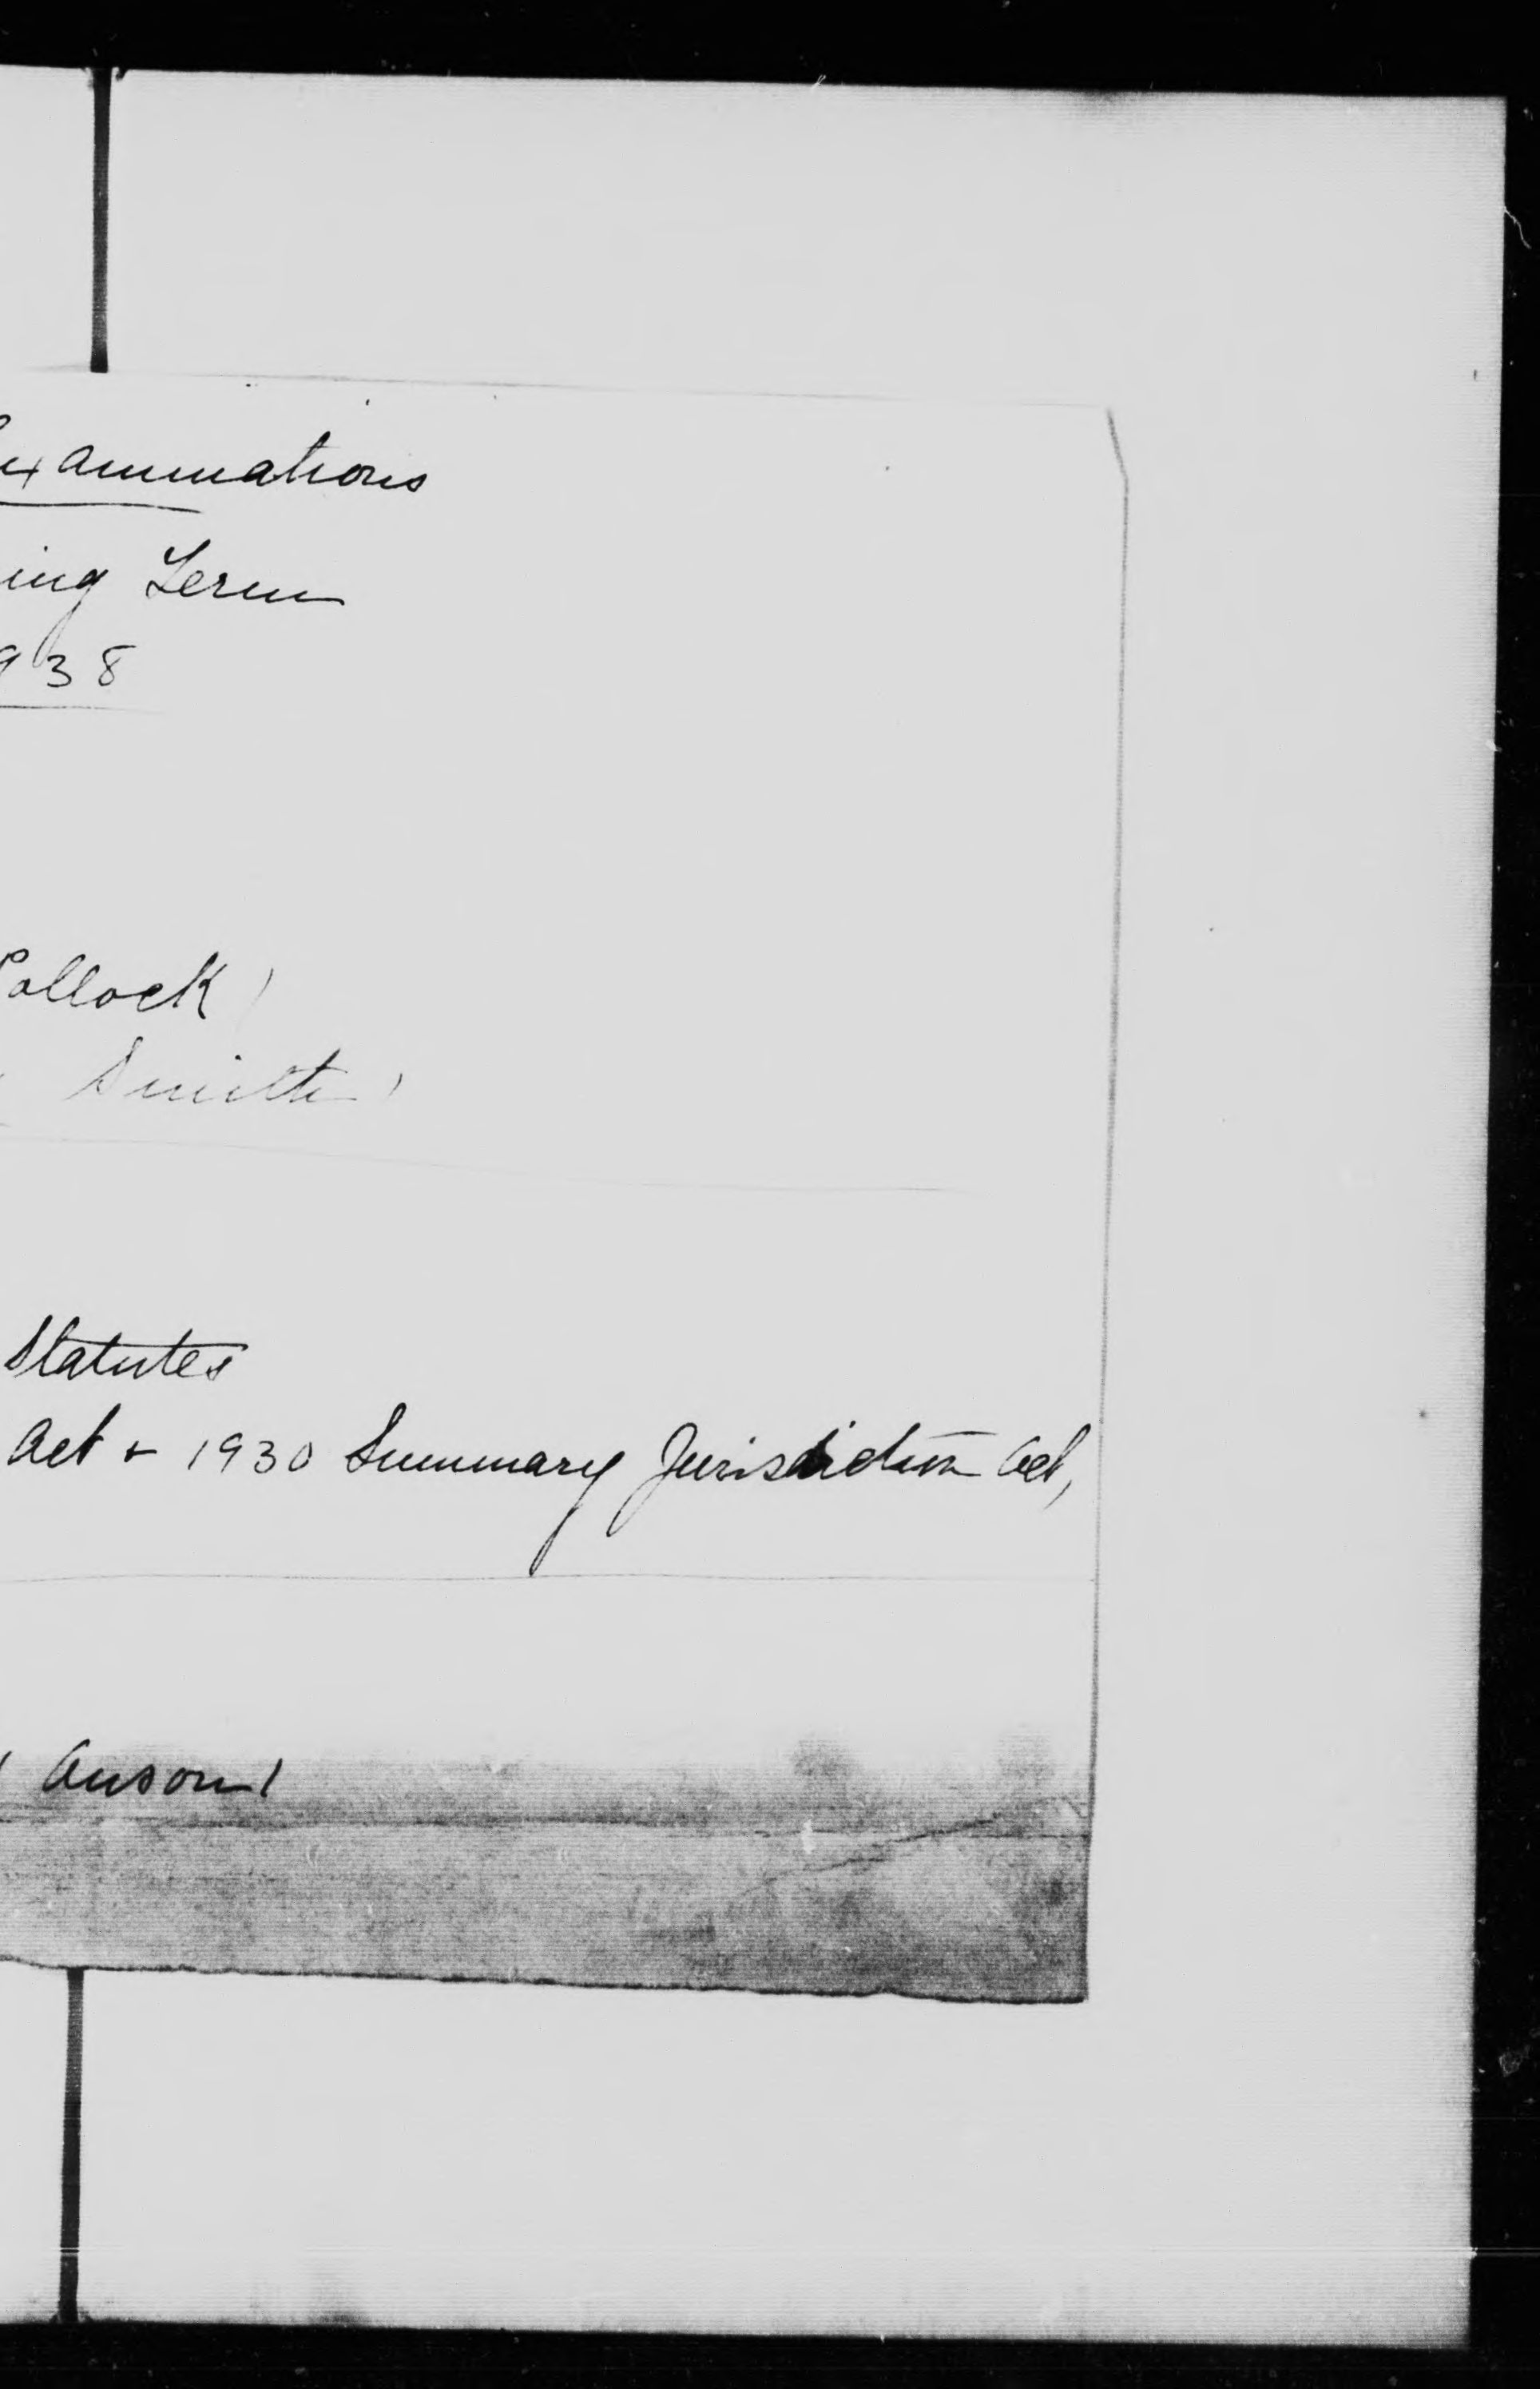 Examinations
ing Term
938
Pollock)
Smith)
Statutes
Act + 1930 Summary Jurisdiction Act,
(Anson)